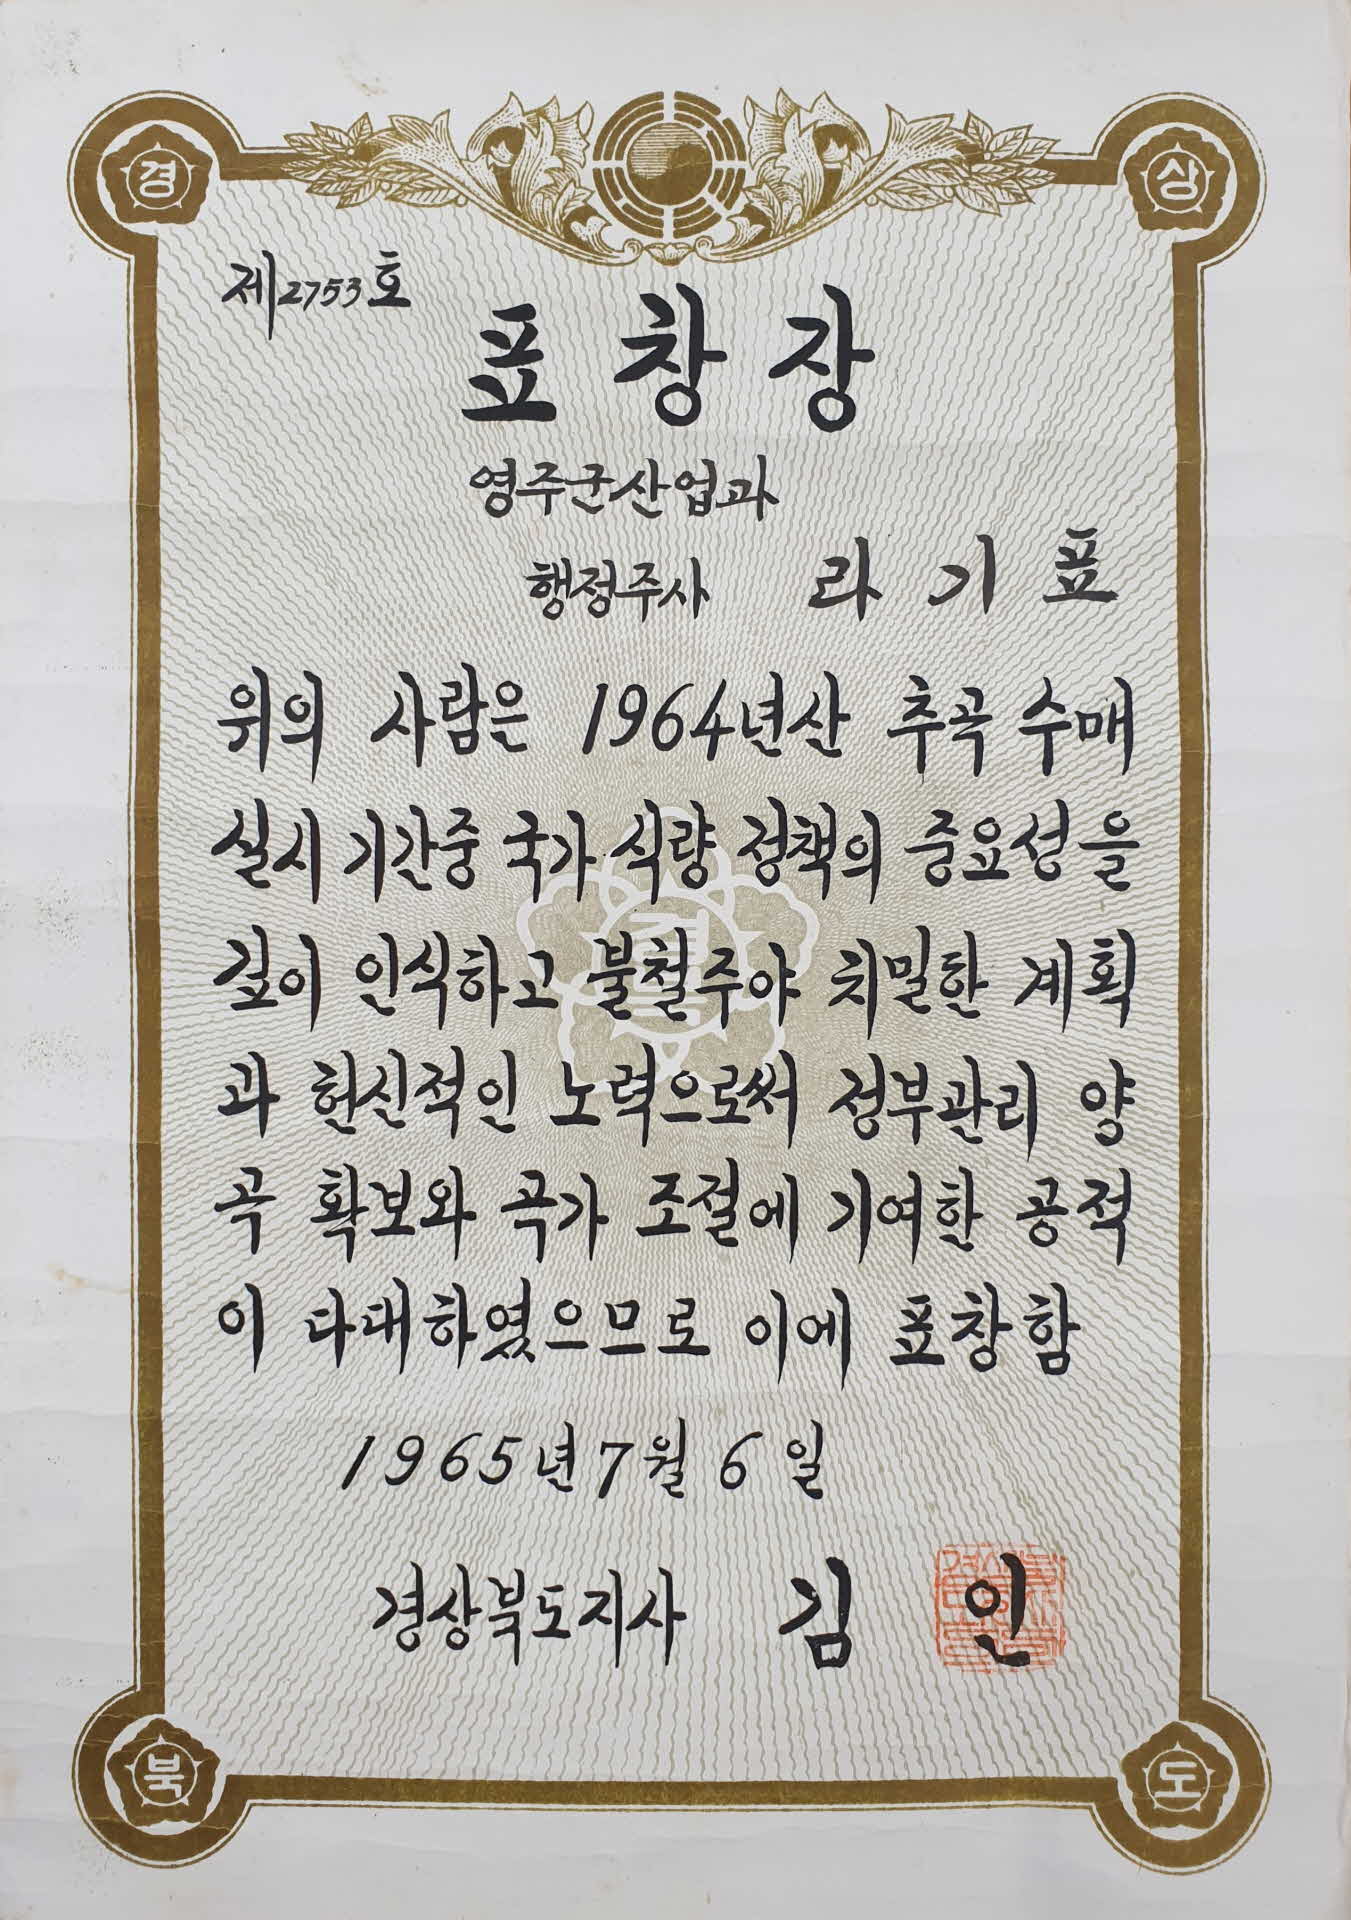 경 상
제2753호
표창장
영주군산업과
행정주사 라기표
위의 사람은 1964년산 추곡 수매
실시 기간중 국가 식량 정책의 중요성을
깊이 인식하고 불철주야 치밀한 계획
과 헌신적인 노력으로써 정부관리 양
곡 확보와 곡가 조절에 기여한 공적
이 다대하였으므로 이에 표창함
1965년 7월 6일
경상북도지사 김 인
북 도